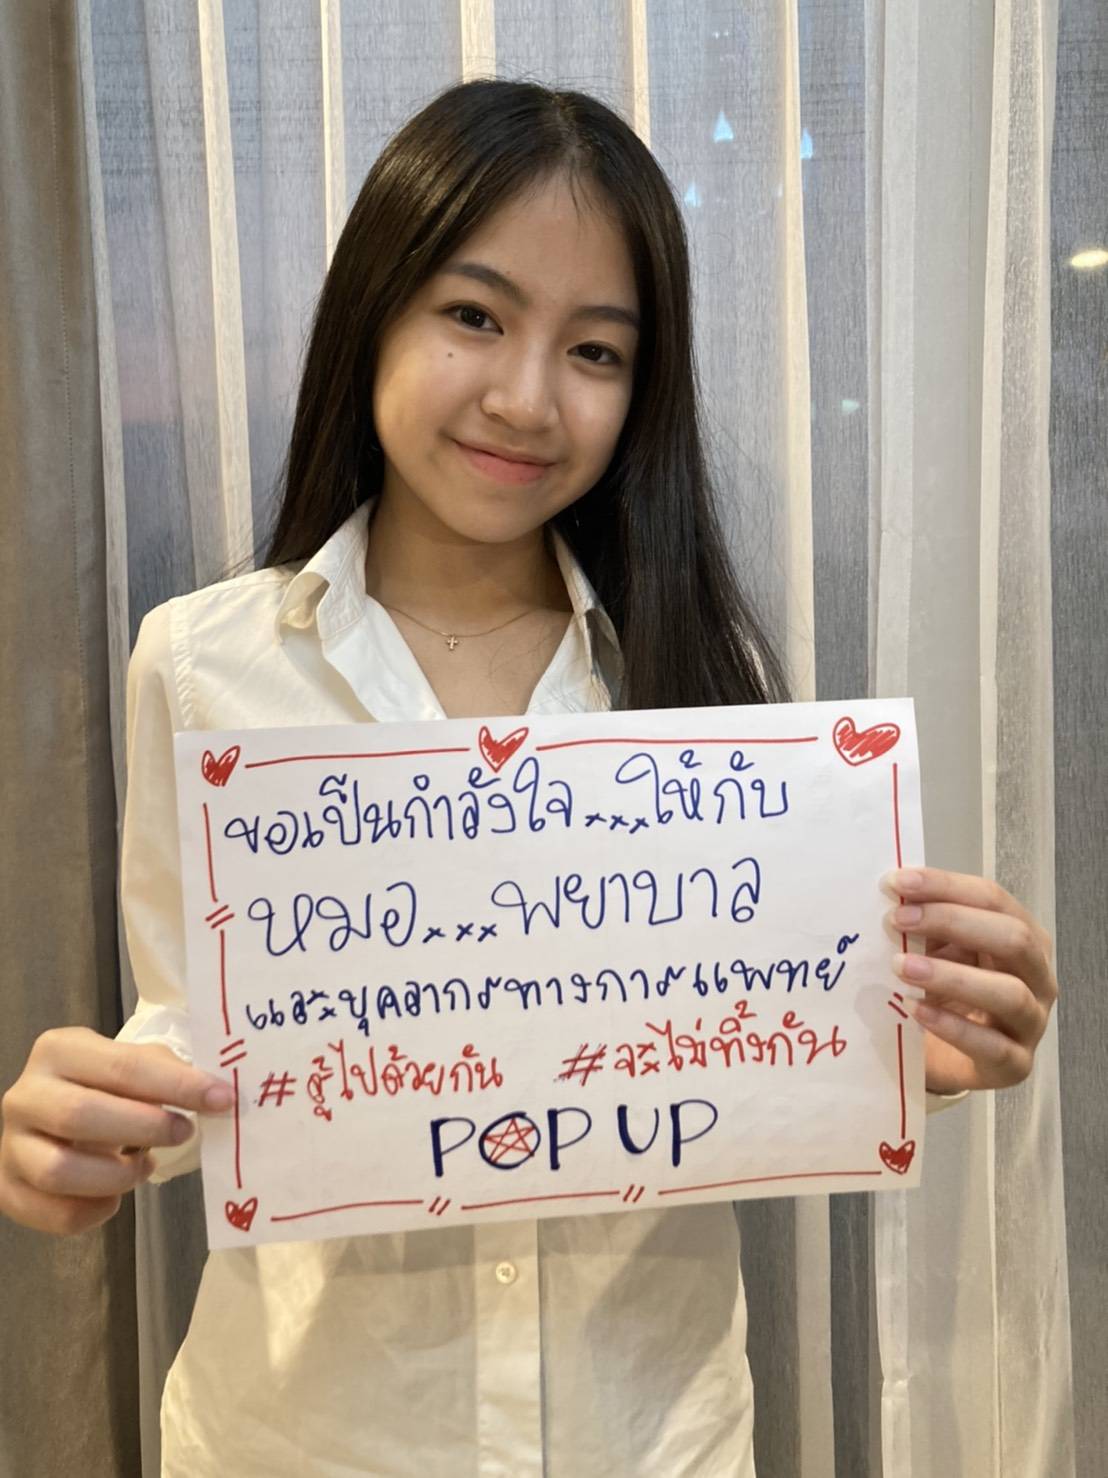 ขอเป็นกำลังใจ...ให้กับ
หมอ...พยาบาล
และบุคลากรทางการแพทย์
#สู้ไปด้วยกัน #จะไม่ทิ้งกัน
POP UP